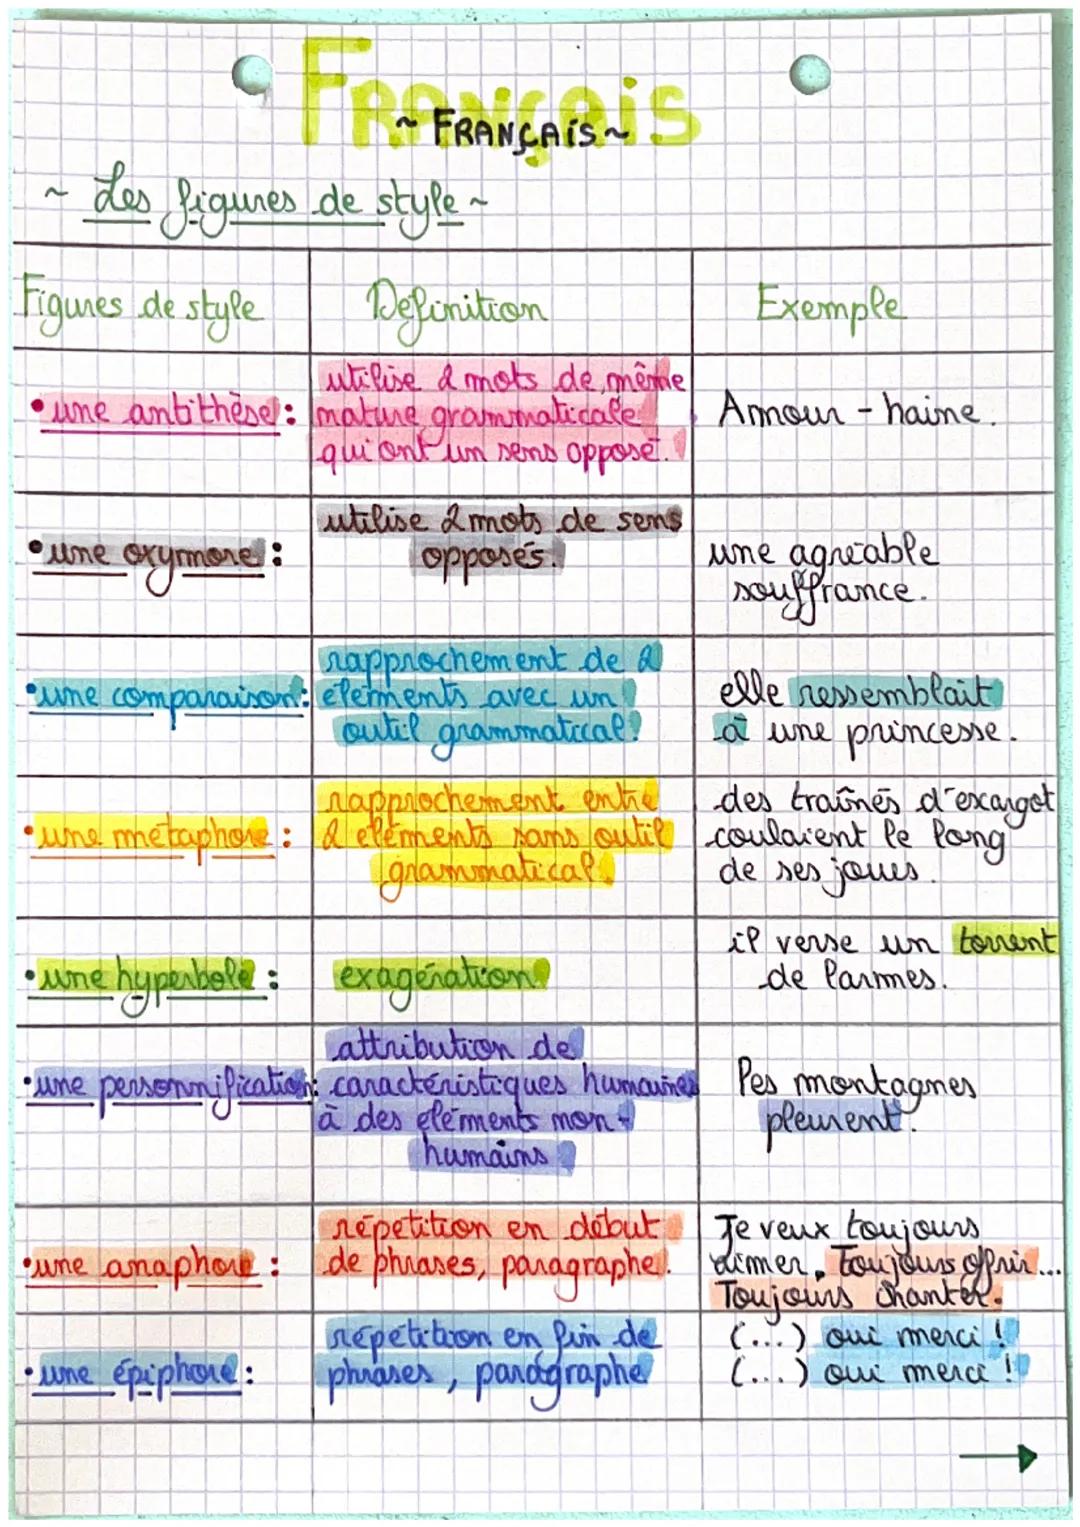 FRANÇAIS
~ FRANÇAIS ~
~ Les figures de style ~
Figures de style
Définition
Exemple
• une antithèse :
utilise 2 mots de même
nature grammaticale
qui ont un sens opposé.
Amour - haine.
• une oxymore :
utilise 2 mots de sens
opposés.
une agréable
souffrance.
• une comparaison :
rapprochement de 2
éléments avec un
outil grammatical.
elle ressemblait
à une princesse.
• une métaphore :
rapprochement entre
2 éléments sans outil
grammatical.
des traînés d'excargot
coulaient le long
de ses joues.
• une hyperbole :
exagération
il verse un torrent
de larmes.
• une personnification :
attribution de
caractéristiques humaines
à des éléments non-
humains
les montagnes
pleurent.
• une anaphore :
répétition en début
de phrases, paragraphe.
Je veux toujours
aimer. Toujours offrir...
Toujours chanter.
• une épiphore :
répétition en fin de
phrases, paragraphe
(...) oui merci !
(...) oui merci !